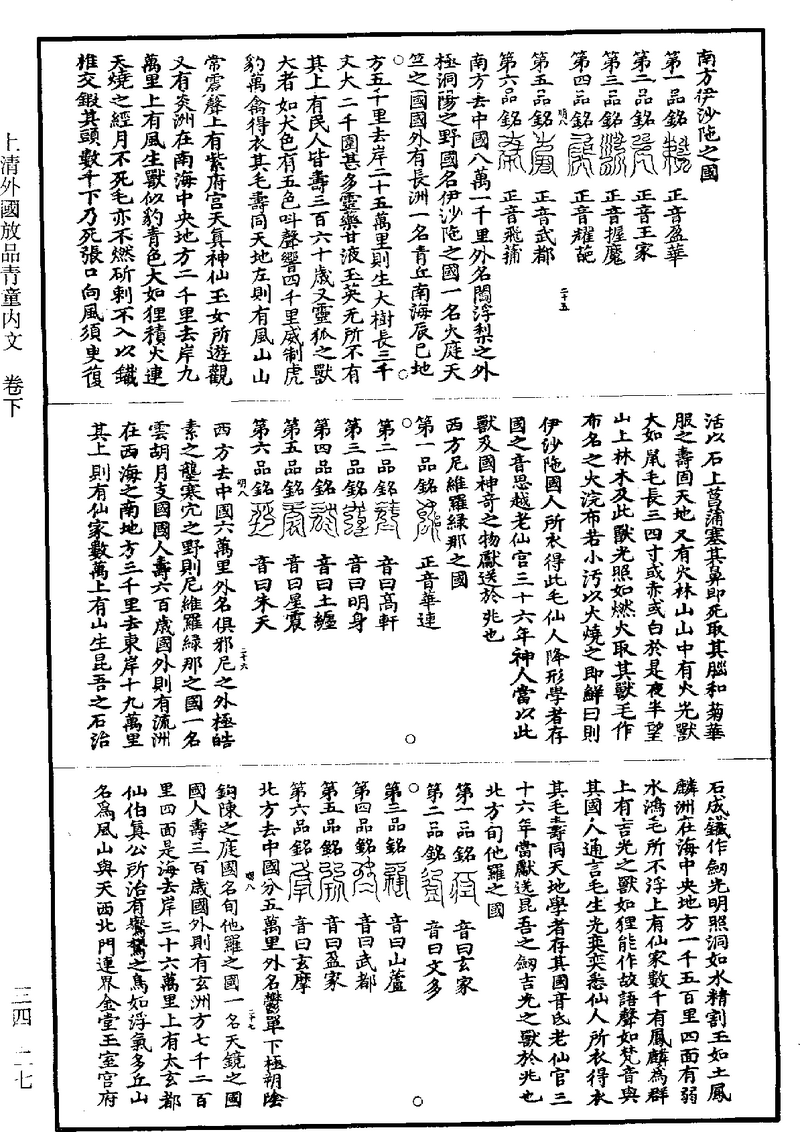 南方伊沙陁之國
第一品銘 正音盈華
第二品銘 正音王家
第三品銘 正音握魔
第四品銘 正音耀葩
第五品銘 正音武都
第六品銘 正音飛蒲
南方去中國八萬一千里外名閻浮梨之外
極洞陽之野國名伊沙陁之國一名火庭天
竺之國國外有長洲一名青丘南海辰巳地
方五千里去岸二十五萬里則生大樹長三千
丈大二千圍甚多靈藥甘液玉英无所不有
其上有民人皆壽三百六十歲又靈狐之獸
大者如犬色有五色叫聲響四千里威制虎
豹萬禽得衣其毛壽同天地左則有風山山
常震聲上有紫府宮天真神仙玉女所遊觀
又有炎洲在南海中央地方二千里去岸九
萬里上有風生獸似豹青色大如狸積火連
天燒之經月不死毛亦不燃斫刺不入以鐵
椎交鍜其頭數千下乃死張口向風須臾復
活以石上菖蒲塞其鼻即死取其腦和菊華
服之壽固天地又有火林山山中有火光獸
大如鼠毛長三四寸或赤或白於是夜半望
山上林木及此獸光照如燃火取其獸毛作
布名之火浣布若小汚以火燒之即鮮曰則
伊沙陁國人所衣得此毛仙人降形學者存
國之音思越老仙官三十六年神人當以此
獸及國神奇之物獻送於兆也
西方尼維羅緑那之國
第一品銘 正音華連
第二品銘 音曰高軒
第三品銘 音曰明身
第四品銘 音曰土纏
第五品銘 音曰星震
第六品銘 音曰朱天
西方去中國六萬里外名俱邪尼之外極皓
素之壟寒穴之野則尼維羅緑那之國一名
雲胡月支國國人壽六百歲國外則有流洲
在西海之南地方三千里去東岸十九萬里
其上則有仙家數萬上有山生昆吾之石治
石成鐵作劒光明照洞如水精割玉如土鳳
麟洲在海中央地方一千五百里四面有弱
水鴻毛所不浮上有仙家數千有鳳麟為群
上有吉光之獸如狸能作故語聲如梵音與
其國人通言毛生光奕奕悉仙人所衣得衣
其毛壽同天地學者存其國音氐老仙官三
十六年當獻送昆吾之劒吉光之獸於兆也
北方旬他羅之國
第一品銘 音曰玄家
第二品銘 音曰文多
第三品銘 音曰山蘆
第四品銘 音曰武都
第五品銘 音曰盈家
第六品銘 音曰玄摩
北方去中國分五萬里外名鬱單下極朔陰
鈎陳之庭國名旬他羅之國一名天鏡之國
國人壽三百歲國外則有玄洲方七千二百
里四面是海去岸三十六萬里上有太玄都
仙伯真公所治有鸑鷟之鳥如浮氣多丘山
名爲風山與天西北門連界金堂玉室宮府
上清外國放品青童內文 卷下
三四 二七